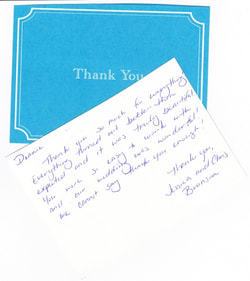 Thank You
Dannie
Thank you so much for everything
Everything turned out better than
expected and it was truly beautiful
You were so easy to work with
and our wedding was wonderful!
We cannot say thank you enough!
Thank you,
Jessica and
Bronson